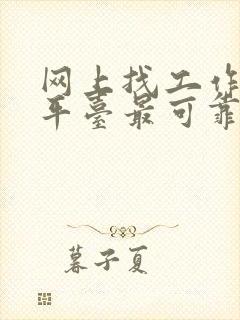 网上找工作
平臺最可靠
暮子夏